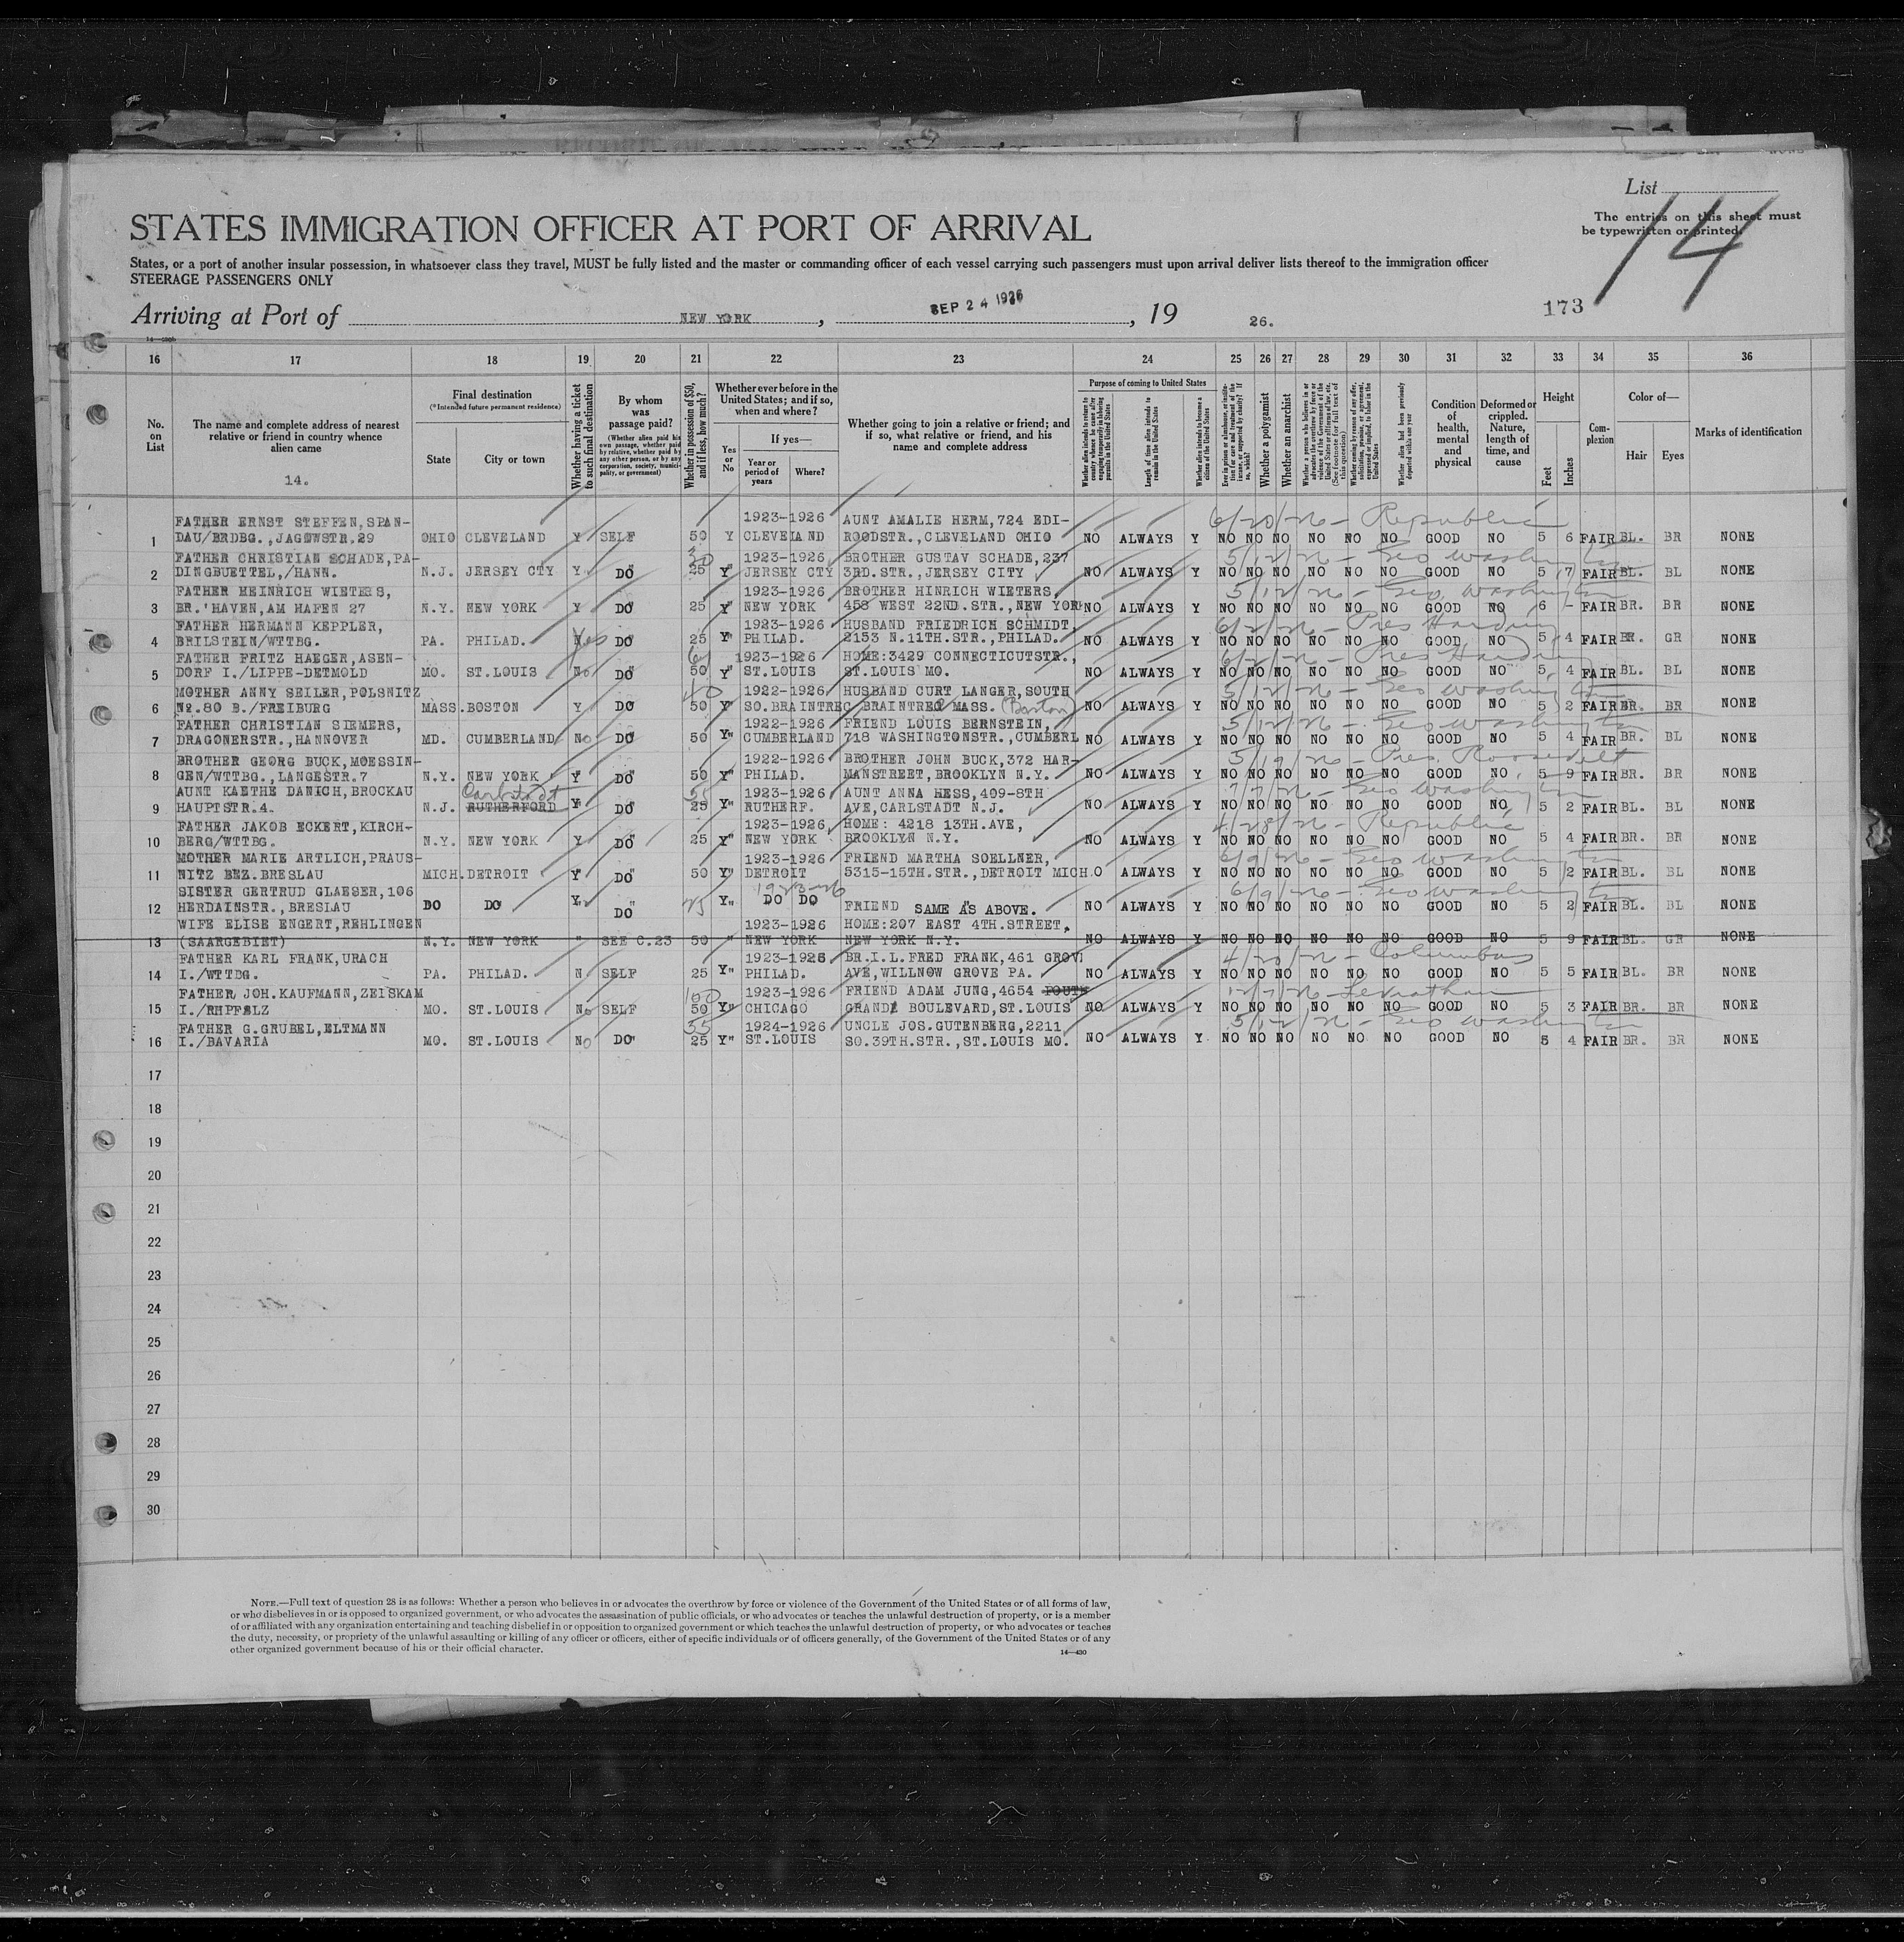 List
14
The entries on this sheet must
be typewritten or printed.
STATES IMMIGRATION OFFICER AT PORT OF ARRIVAL
States, or a port of another insular possession, in whatsoever class they travel, MUST be fully listed and the master or commanding officer of each vessel carrying such passengers must upon arrival deliver lists thereof to the immigration officer
STEERAGE PASSENGERS ONLY
Arriving at Port of NEW YORK, SEP 24 1926, 19 26.
173
16 17 18 19 20 21 22 23 24 25 26 27 28 29 30 31 32 33 34 35 36
No. on List
The name and complete address of nearest relative or friend in country whence alien came
14.
Final destination
(*Intended future permanent residence)
State
City or town
Whether having a ticket to such final destination
By whom was passage paid?
(Whether alien paid his own passage, whether paid by relative, whether paid by any other person, or by any corporation, society, municipality, or government)
Whether in possession of $50, and if less, how much?
Whether ever before in the United States; and if so, when and where?
Yes or No
If yes—
Year or period of years
Where?
Whether going to join a relative or friend; and if so, what relative or friend, and his name and complete address
Purpose of coming to United States
Length of time alien intends to remain in the United States
Whether alien intends to become a citizen of the United States
Whether a polygamist
Whether an anarchist
Condition of health, mental and physical
Deformed or crippled. Nature, length of time, and cause
Height
Feet
Inches
Complexion
Color of—
Hair
Eyes
Marks of identification
FATHER ERNST STEFFEN,SPAN- 1923-1926 AUNT AMALIE HERM,724 EDI- 6/20/26 - Republic
1 DAU/BRDBG.,JAGOWSTR.29 OHIO CLEVELAND Y SELF 50 Y CLEVELAND ROODSTR.,CLEVELAND OHIO NO ALWAYS Y NO NO NO NO NO NO GOOD NO 5 6 FAIR BL. BR NONE
FATHER CHRISTIAN SCHADE,PA- 30 1923-1926 BROTHER GUSTAV SCHADE,237 5/12/26 - Geo Washington
2 DINGBUETTEL,/HANN. N.J. JERSEY CTY Y DO" 25 Y" JERSEY CTY 3RD.STR.,JERSEY CITY NO ALWAYS Y NO NO NO NO NO NO GOOD NO 5 7 FAIR BL. BL NONE
FATHER HEINRICH WIETERS, 1923-1926 BROTHER HINRICH WIETERS, 5/12/26 - Geo. Washington
3 BR.'HAVEN,AM HAFEN 27 N.Y. NEW YORK Y DO" 25 Y" NEW YORK 458 WEST 22ND.STR.,NEW YORK NO ALWAYS Y NO NO NO NO NO NO GOOD NO 6 - FAIR BR. BR NONE
FATHER HERMANN KEPPLER, 1923-1926 HUSBAND FRIEDRICH SCHMIDT, 6/2/26 - Pres Harding
4 BRILSTEIN/WTTBG. PA. PHILAD. Yes DO" 25 Y" PHILAD. 2153 N.11TH.STR.,PHILAD. NO ALWAYS Y NO NO NO NO NO NO GOOD NO 5 4 FAIR BR. GR NONE
FATHER FRITZ HAEGER,ASEN- 1923-1926 HOME:3429 CONNECTICUTSTR., 6/2/26 - Pres Harding
5 DORF I./LIPPE-DETMOLD MO. ST.LOUIS No DO" 50 Y" ST.LOUIS ST.LOUIS MO. NO ALWAYS Y NO NO NO NO NO NO GOOD NO 5 4 FAIR BL. BL NONE
MOTHER ANNY SEILER,POLSNITZ 1922-1926 HUSBAND CURT LANGER,SOUTH 5/12/26 - Geo Washington
6 No.80 B./FREIBURG MASS. BOSTON Y DO" 50 Y" SO.BRAINTREE BRAINTREE MASS. (Boston) NO ALWAYS Y NO NO NO NO NO NO GOOD NO 5 2 FAIR BR. BR NONE
FATHER CHRISTIAN SIEMERS, 1922-1926 FRIEND LOUIS BERNSTEIN, 5/12/26 - Geo Washington
7 DRAGONERSTR.,HANNOVER MD. CUMBERLAND No DO" 50 Y" CUMBERLAND 718 WASHINGTONSTR.,CUMBERL NO ALWAYS Y NO NO NO NO NO NO GOOD NO 5 4 FAIR BR. BL NONE
BROTHER GEORG BUCK,MOESSIN- 1922-1926 BROTHER JOHN BUCK,372 HAR- 5/19/26 - Pres. Roosevelt
8 GEN/WTTBG.,LANGESTR.7 N.Y. NEW YORK Y DO" 50 Y" PHILAD. MANSTREET,BROOKLYN N.Y. NO ALWAYS Y NO NO NO NO NO NO GOOD NO 5 9 FAIR BR. BR NONE
AUNT KAETHE DANICH,BROCKAU Carlstadt 1923-1926 AUNT ANNA HESS,409-8TH 7/7/26 - Geo Washington
9 HAUPTSTR.4. N.J. RUTHERFORD Y DO" 25 Y" RUTHERF. AVE,CARLSTADT N.J. NO ALWAYS Y NO NO NO NO NO NO GOOD NO 5 2 FAIR BL. BL NONE
FATHER JAKOB ECKERT,KIRCH- 1923-1926 HOME: 4218 13TH.AVE, 4/28/26 - Republic
10 BERG/WTTBG. N.Y. NEW YORK Y DO" 25 Y" NEW YORK BROOKLYN N.Y. NO ALWAYS Y NO NO NO NO NO NO GOOD NO 5 4 FAIR BR. BR NONE
MOTHER MARIE ARTLICH,PRAUS- 1923-1926 FRIEND MARTHA SOELLNER, 6/9/26 - Geo Washington
11 NITZ BEZ.BRESLAU MICH. DETROIT Y DO" 50 Y" DETROIT 5315-15TH.STR.,DETROIT MICH.O ALWAYS Y NO NO NO NO NO NO GOOD NO 5 2 FAIR BL. BL NONE
SISTER GERTRUD GLAESER,106 1923-26 6/9/26 - Geo Washington
12 HERDAINSTR.,BRESLAU DO DO Y DO" 25 Y" DO DO FRIEND SAME AS ABOVE. NO ALWAYS Y NO NO NO NO NO NO GOOD NO 5 2 FAIR BL. BL NONE
WIFE ELISE ENGERT,REHLINGEN 1923-1926 HOME:207 EAST 4TH.STREET,
13 (SAARGEBIET) N.Y. NEW YORK " SEE C.23 50 " NEW YORK NEW YORK N.Y. NO ALWAYS Y NO NO NO NO NO NO GOOD NO 5 9 FAIR BL. GR NONE
FATHER KARL FRANK,URACH 1923-1926 BR.I.L.FRED FRANK,461 GROVE 4/20/26 - Columbus
14 I./WTTBG. PA. PHILAD. N SELF 25 Y" PHILAD. AVE,WILLNOW GROVE PA. NO ALWAYS Y NO NO NO NO NO NO GOOD NO 5 5 FAIR BL. BR NONE
FATHER JOH.KAUFMANN,ZEISKAM 100 1923-1926 FRIEND ADAM JUNG,4654 Leviathan
15 I./RHPFELZ MO. ST.LOUIS No SELF 50 Y" CHICAGO GRANDE BOULEVARD,ST.LOUIS NO ALWAYS Y NO NO NO NO NO NO GOOD NO 5 3 FAIR BR. BR NONE
FATHER G.GRUBEL,ELTMANN 35 1924-1926 UNCLE JOS.GUTENBERG,2211 5/12/26 - Geo Washington
16 I./BAVARIA MO. ST.LOUIS No DO" 25 Y" ST.LOUIS SO.39TH.STR.,ST.LOUIS MO. NO ALWAYS Y NO NO NO NO NO NO GOOD NO 5 4 FAIR BR. BR NONE
17
18
19
20
21
22
23
24
25
26
27
28
29
30
NOTE.—Full text of question 28 is as follows: Whether a person who believes in or advocates the overthrow by force or violence of the Government of the United States or of all forms of law,
or who disbelieves in or is opposed to organized government, or who advocates the assassination of public officials, or who advocates or teaches the unlawful destruction of property, or is a member
of or affiliated with any organization entertaining and teaching disbelief in or opposition to organized government or which teaches the unlawful destruction of property, or who advocates or teaches
the duty, necessity, or propriety of the unlawful assaulting or killing of any officer or officers, either of specific individuals or of officers generally, of the Government of the United States or of any
other organized government because of his or their official character.
14—430